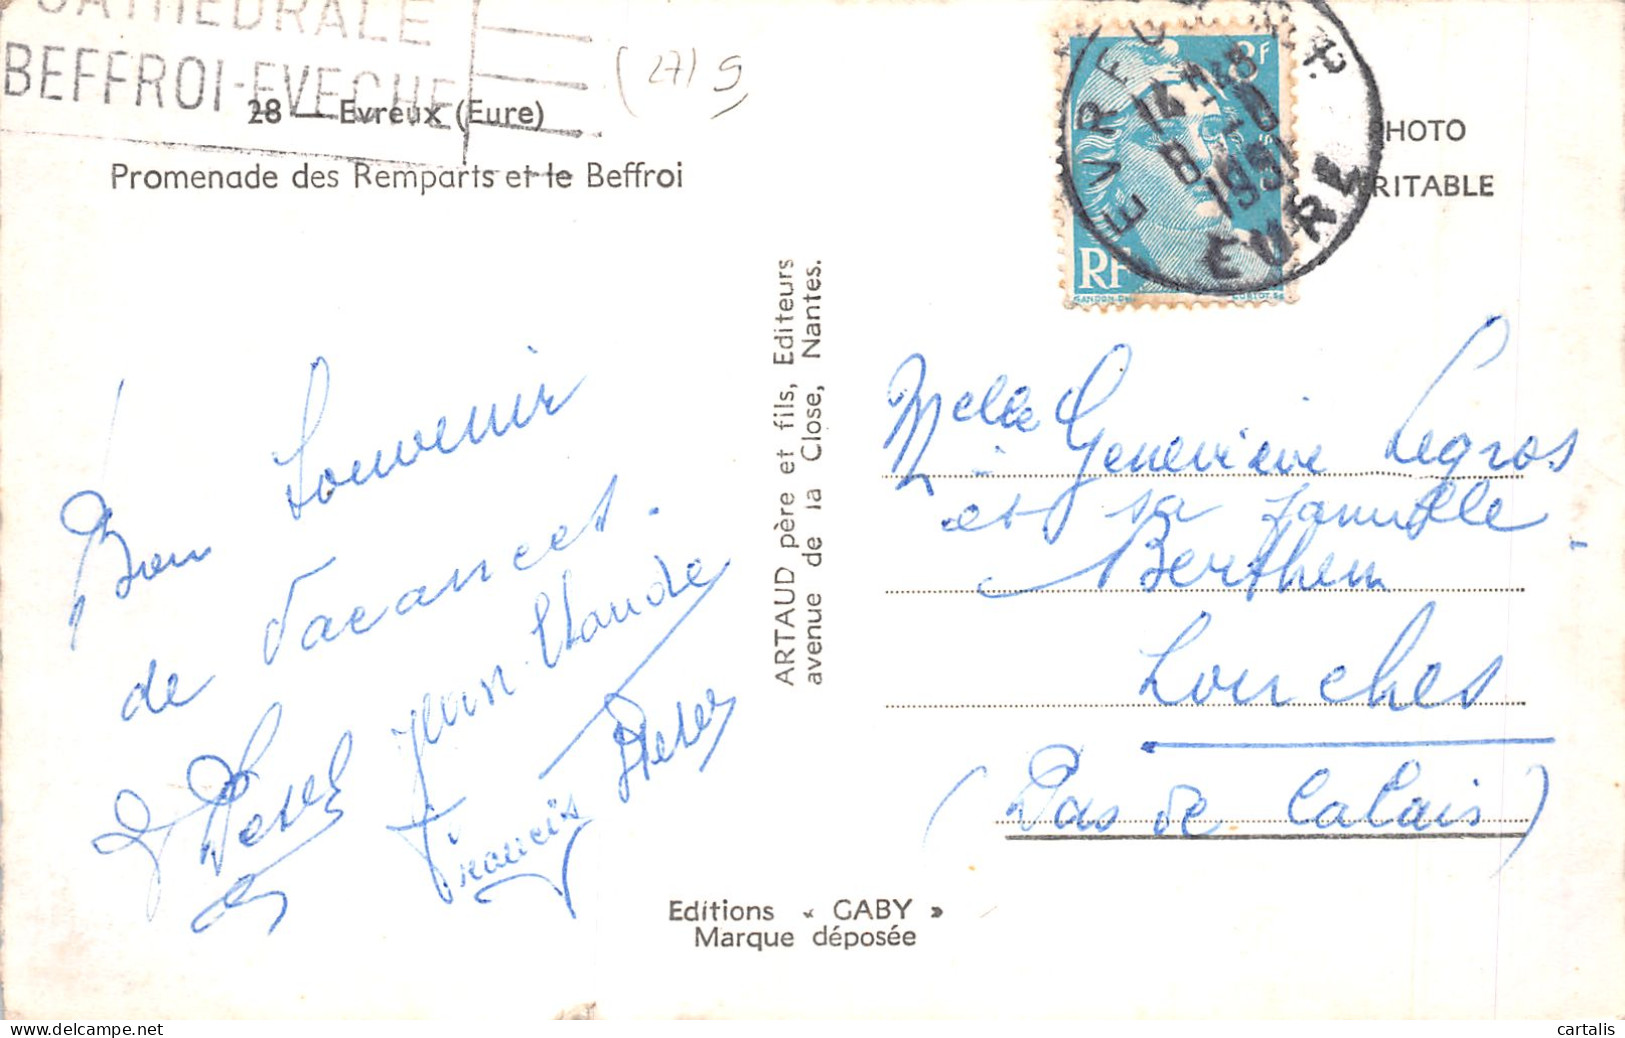 CATHEDRALE
BEFFROI-EVECHE
(27) 9
28 — Evreux (Eure)
Promenade des Remparts et le Beffroi
Bon Souvenir
de Vacances.
Jean-Claude
Francis
ARTAUD père et fils, Editeurs
avenue de la Close, Nantes.
Editions « GABY »
Marque déposée
8f
RF
GANDON DEL
CORTOT SC
EVREUX
EURE
PHOTO
RITABLE
Melle Geneviève Legros
et sa famille
Berthem
Louches
(Pas de Calais)
cartalis